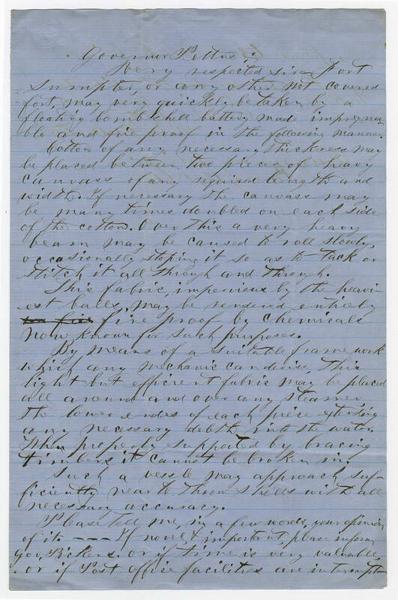 Governor Pettus,
Very respected sir Fort
Sumpter, or any other not covered
fort, may very quickly be taken by a
floating bomb shell battery made impregna-
ble and fire proof in the following manner.
Cotton of any necessary thickness may
be placed between two pieces of heavy
canvass of any required length and
width. If necessary the canvass may
be many times doubled on each side
of the cotton. Over this a very heavy
beam may be caused to roll slowly,
occasionally stoping it so as to tack or
stitch it all through and through.
This fabric, impervious by the heavi-
est balls, may be rendered entirely
fire proof by chemicals
now known for such purposes.
By means of a suitable frame work
which any mechanic can devise, this
light but efficient fabric may be placed
all around and over any steamer
the lower endes of each piece extending
any necessary debth into the water.
When properly supported by bracing
timbers it cannot be broken in.
Such a vessle may approach suf-
ficiently near to throw shells with all
necessary accuracy.
Please tell me, in a few words, your opinion
of it. --- If novel & important, please inform
gov. Pickens. or if time is very valuable,
or if Post office facilities are interrupt-